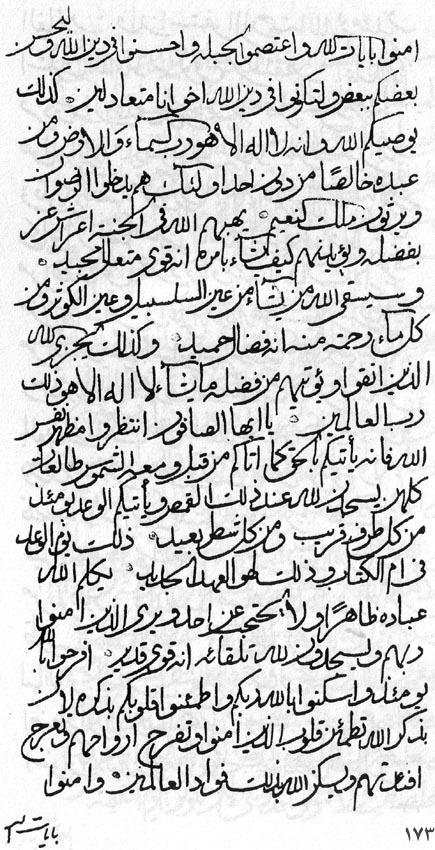 امنوا بايات الله واعتصموا بحبله واحسنوا في دين الله ليحبن
بعضكم ببعض ولتكونوا في دين الله اخوانا متعادلين كذلك
يوصيكم الله وانه لا اله الا هو رب السماء والارض ومن
عبده خالصًا من دون احد اولئك هم يدخلوا الرضوان
ويرثون ملك النعيم يهبهم الله في الجنة اعراش عز
بفضله ويؤيدنهم كيف يشاء بامره انه قوى متعالى مجيد
وسيسقى الله من يشاء من عين السلسبيل وعين الكوثر ومن
كل ماء رحمة منه انه فضال حميد وكذلك يجزى الله
الذين اتقوا ويؤتيهم من فضله ما يشاء لا اله الا هو ذلك
رب العالمين يا ايها الصافون انتظروا مظهر نفس
الله فانه يأتيكم بالحق كما اتاكم من قبل ومعه الشموس طالعات
كلهن يسجدن لله عند ذلك القمص ويأتيكم الوعد يومئذ
من كل طرف قريب ومن كل شطر بعيد ذلك يوم الوعد
في ام الكتاب وذلك لهو العهد الجديد يكلم الله
عباده ظاهرًا ولا يحتجب عن احد ويرى الذين امنوا
ربهم ويسجدون لله تلقائه انه قوى قدير افرحوا بالله
يومئذ واسكنوا بالله ربكم واطمئنوا قلوبكم بذكره لان
بذكر الله تطمئن قلوب الذين امنوا وتفرح ارواحهم وتعرج
افئدتهم ويسكن الله بذلك فؤاد العالمين وامنوا
بايات
١٧٣